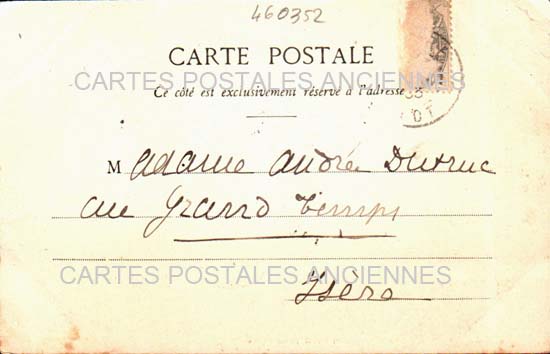 460352
CARTE POSTALE
CARTES POSTALES ANCIENNES
Ce côté est exclusivement réservé à l'adresse
OT
Madame André Dutruc
au Grand Temps
CARTES POSTALES ANCIENNES
Isère